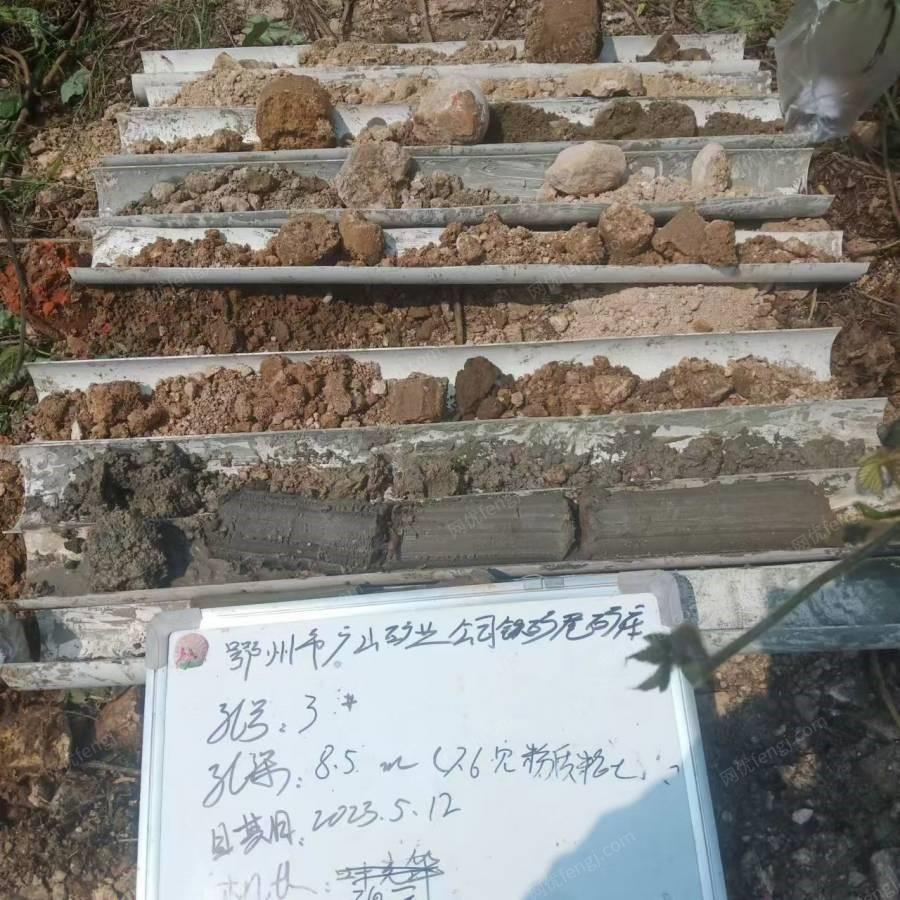 鄂州市广山矿业公司铁矿尾矿库
孔号：3#
孔深：8.5 m (7.6见粉质粘土)
日期：2023.5.12
机长：
网优fengj.com